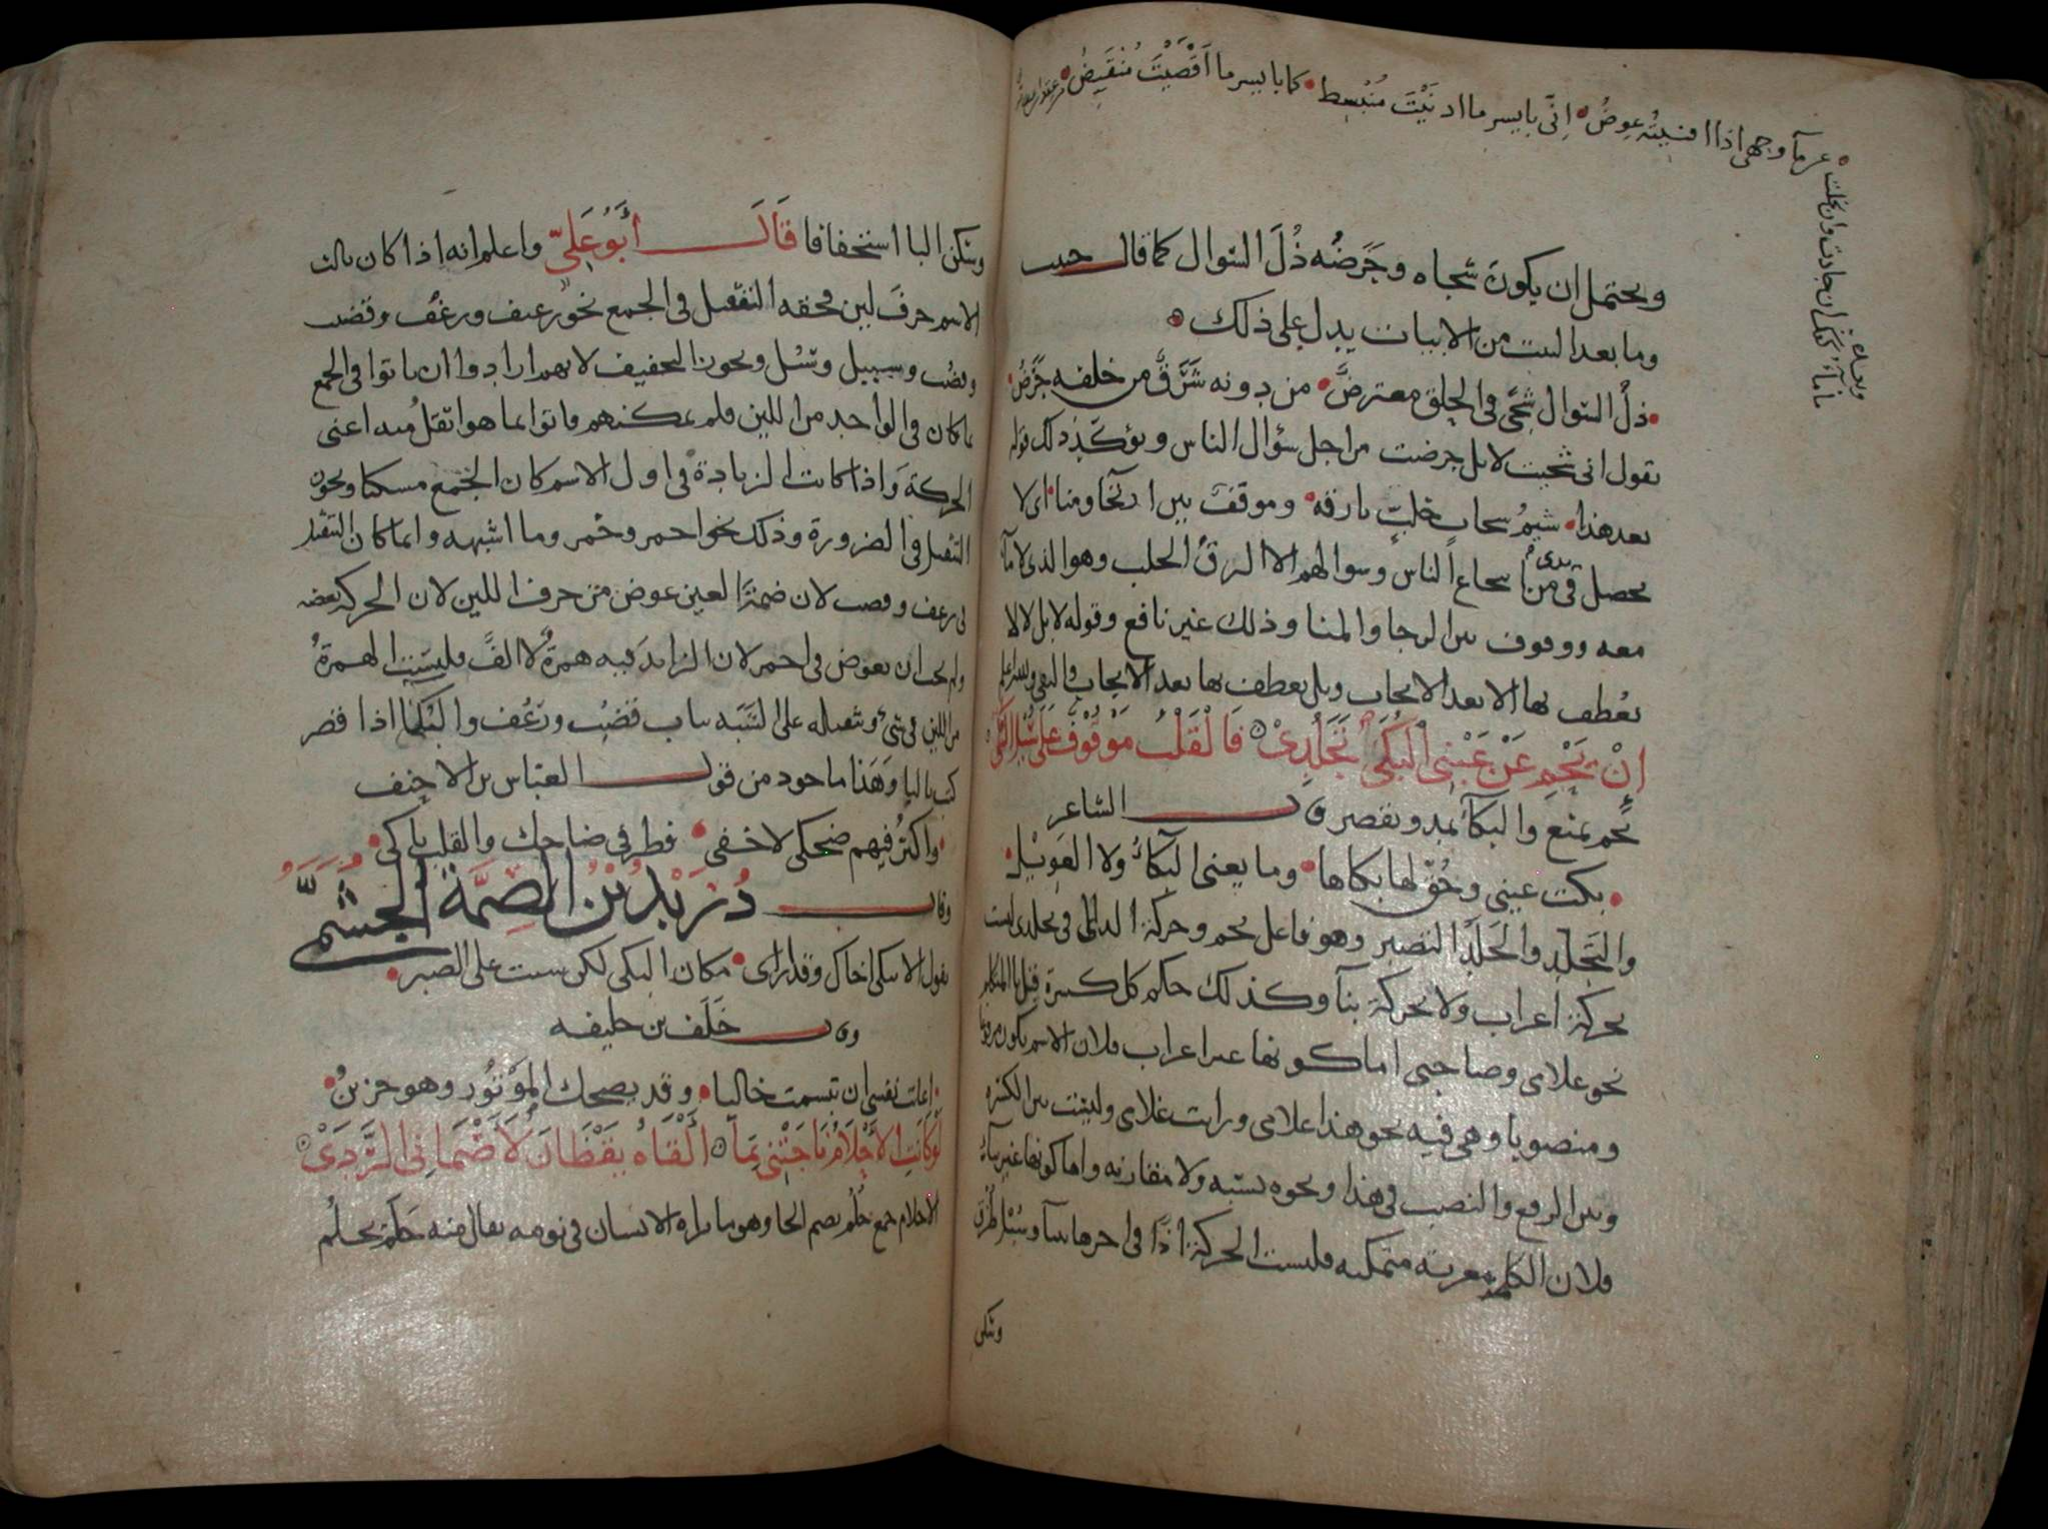 عن ماء وجهي اذا افنيته عوض • اني بايسر ما ادنيت منبسط • كما بايسر ما اقصيت منقبض •
ويحتمل ان يكون شجاه وجرضه ذل السوال كما قال حبيب
وما بعد البيت من الابيات يدل على ذلك •
• ذل السوال شجى في الحلق معترض • من دونه شرق من خلفه جرض •
يقول اني شجيت لا بل جرضت من اجل سؤال الناس ويؤكد ذلك قوله
بعد هذا • شيم سحاب خلب بارقه • وموقف بين ارتجا ومنا • اي لا
يحصل في يدي من الناس وسوالهم الا البرق الخلب وهو الذي لا ماء
معه ووقوف بين الرجا والمنا وذلك غير نافع وقوله لا بل لا لا
يعطف بها الا بعد الايجاب وبل يعطف بها بعد الايجاب والنفي
ان يحم عن عيني البكى تجلدي • فالقلب موقوف على سبل البكى
يحم يمنع والبكاء يمد ويقصر قال الشاعر
• بكت عيني وحق لها بكاها • وما يغني البكاء ولا العويل •
والتجلد والجلد التصبر وهو فاعل يحم وحركة الدال في تجلدي ليست
بحركة اعراب ولا بحركة بناء وكذلك حكم كل كسرة قبل يا المتكلم
نحو غلامي وصاحبي اما كونها غير اعراب فلان الاسم يكون مرفوعا
ومنصوبا وهي فيه نحو هذا غلامي ورايت غلامي وليست بين الكسرة
وبين الرفع والنصب في هذا ونحوه نسبة ولا مقاربة واما كونها غير بناء
فلان الكلمة معربة متمكنة فليست الحركة اذا في اخرها بناء وسبل طرق
وتسكن
وتسكن البا استخفافا قال ابو علي واعلم انه اذا كان ثالث
الاسم حرف لين فحقه التثقيل في الجمع نحو رغيف ورغف وقضيب
وقضب وسبيل وسبل ويجوز التخفيف لانهم ارادوا ان ياتوا في الجمع
ما كان في الواحد من اللين فلم يمكنهم فاتوا بما هو اثقل منه اعني
الحركة واذا كانت الزيادة في اول الاسم كان الجمع مسكنا ويجوز
التثقيل في الضرورة وذلك نحو احمر وحمر وما اشبهه وانما كان التثقيل
في رغف وقضب لان ضمة العين عوض من حرف اللين لان الحركة بعضه
ولم يجب ان يعوض في احمر لان الزايد فيه همزة لا الف وليست الهمزة
من اللين في شيء وتثقيله على التشبه بباب قضب ورغف والبكا اذا قصر
كتب باليا وهذا ماخوذ من قول العباس بن الاحنف
• واكثر فيهم ضحكي لاخفى • فطرفي ضاحك والقلب باكي •
وقال دريد بن الصمة الجشمي
يقول الا تبكي اخاك وقد ارى • مكان البكى لكن بنيت على الصبر •
وقال خلف بن خليفة
• اعاتب نفسي ان تبسمت خاليا • وقد يضحك الموتور وهو حزين •
لو كانت الاحلام ناجتني بما • القاه يقظان لاصماني الردى •
الاحلام جمع حلم بضم الحا وهو ما يراه الانسان في نومه يقال منه حلم يحلم